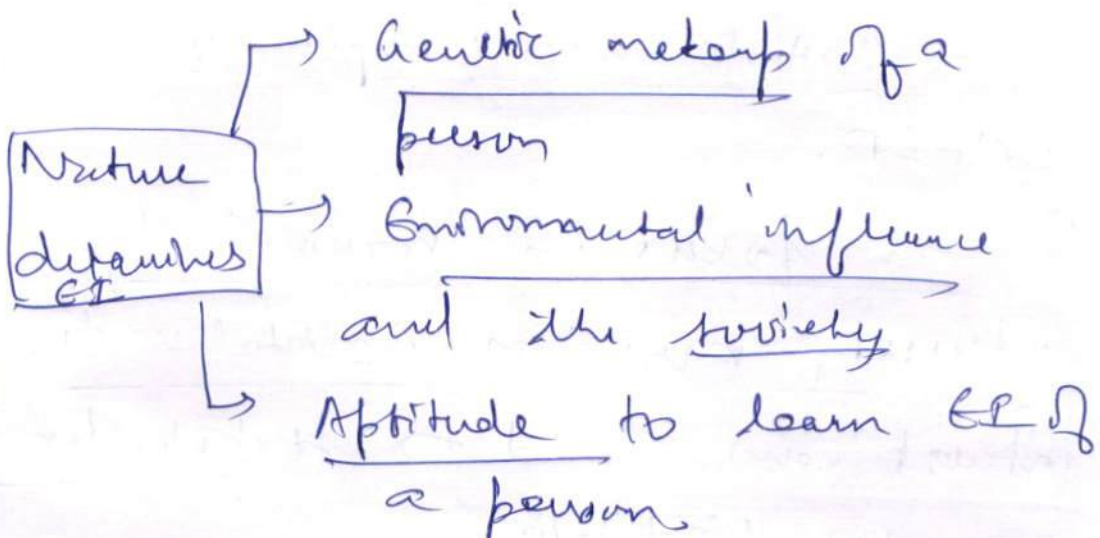 Nature
determines
EI
Genetic makeup of a
person
Environmental influence
and the society
Aptitude to learn EI of
a person